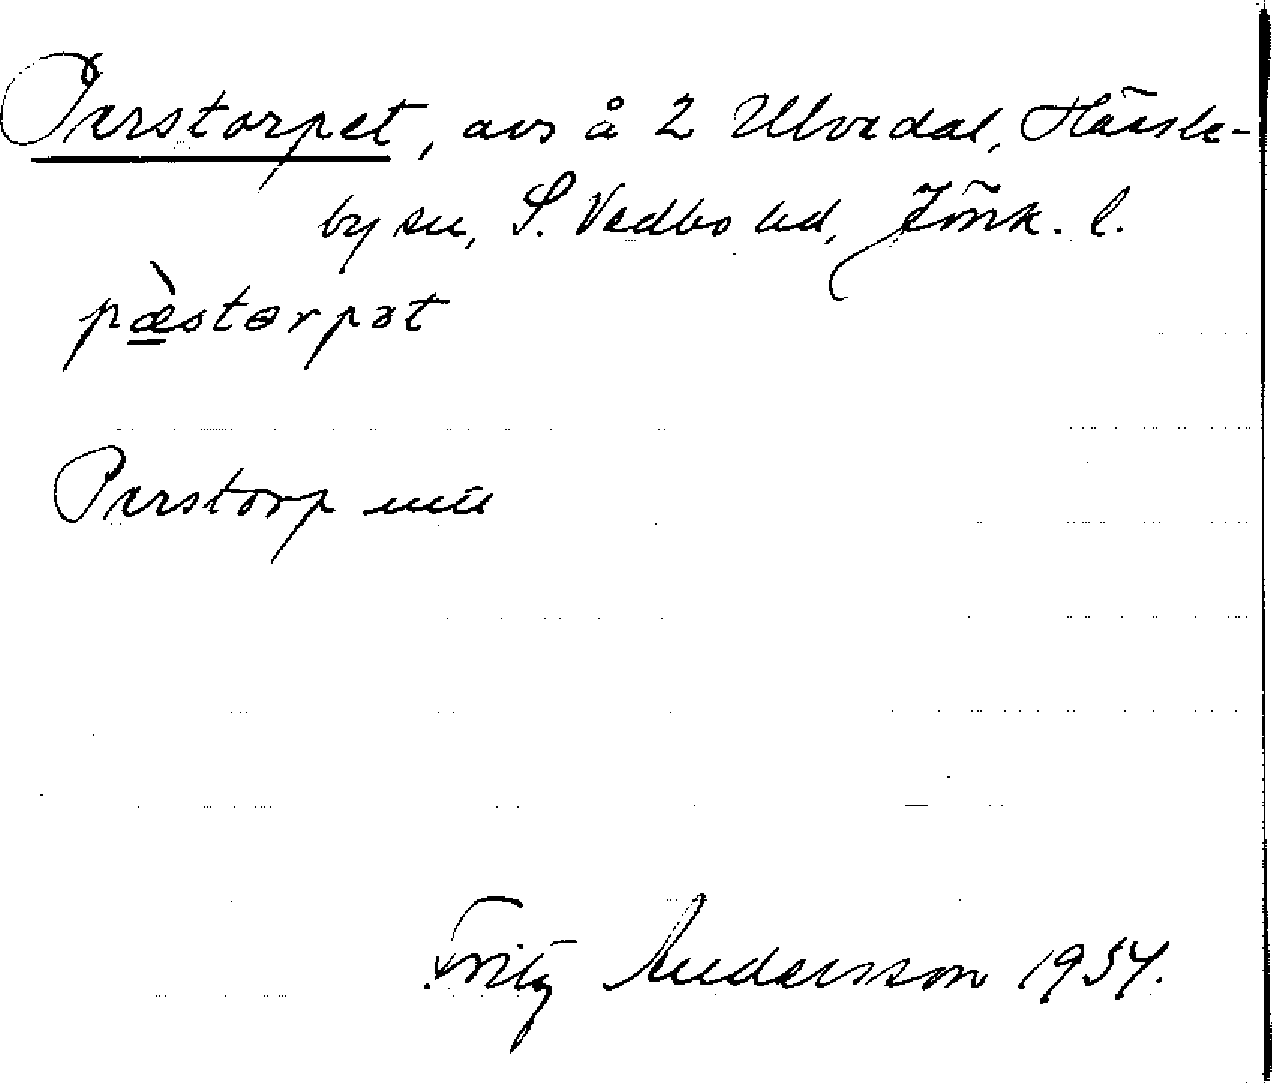 Perstorpet, avs å 2 Ulvedal, Hässle-
by sn, S. Vedbo hd, Jönk. l.
pæ̀storpət
Perstorp
Fritz Andersson 1954.